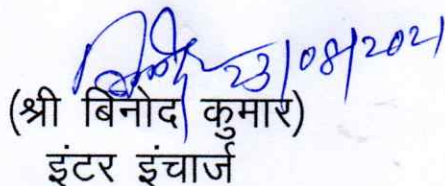 23/08/2021
(श्री बिनोद कुमार)
इंटर इंचार्ज